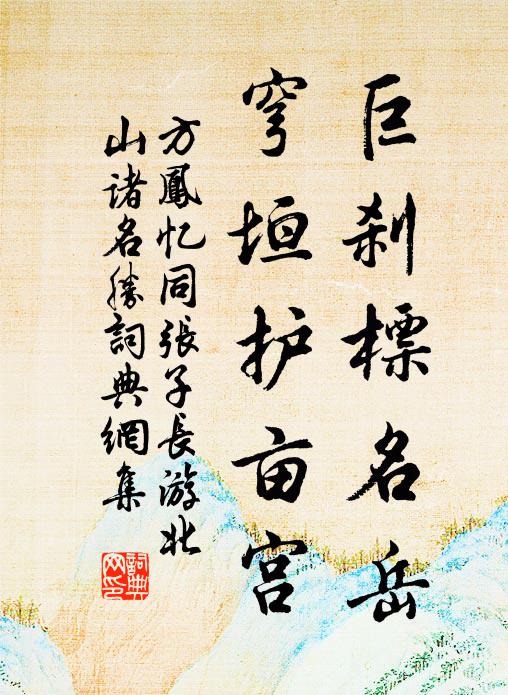 巨刹標名岳
穹垣护亩宫
方鳳忆同張子長游北
山诸名勝詞典網集
詞典
网印